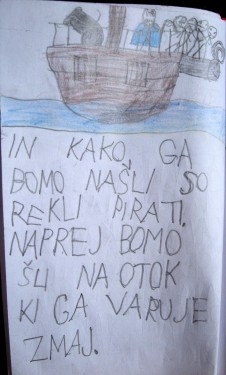 IN KAKO, GA
BOMO NAŠLI SO
REKLI PIRATI.
NAPREJ BOMO
ŠLI NA OTOK
KI GA VARUJE
ZMAJ.